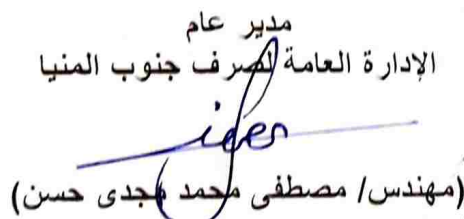 مدير عام
الإدارة العامة لصرف جنوب المنيا
(مهندس/ مصطفى محمد مجدى حسن)